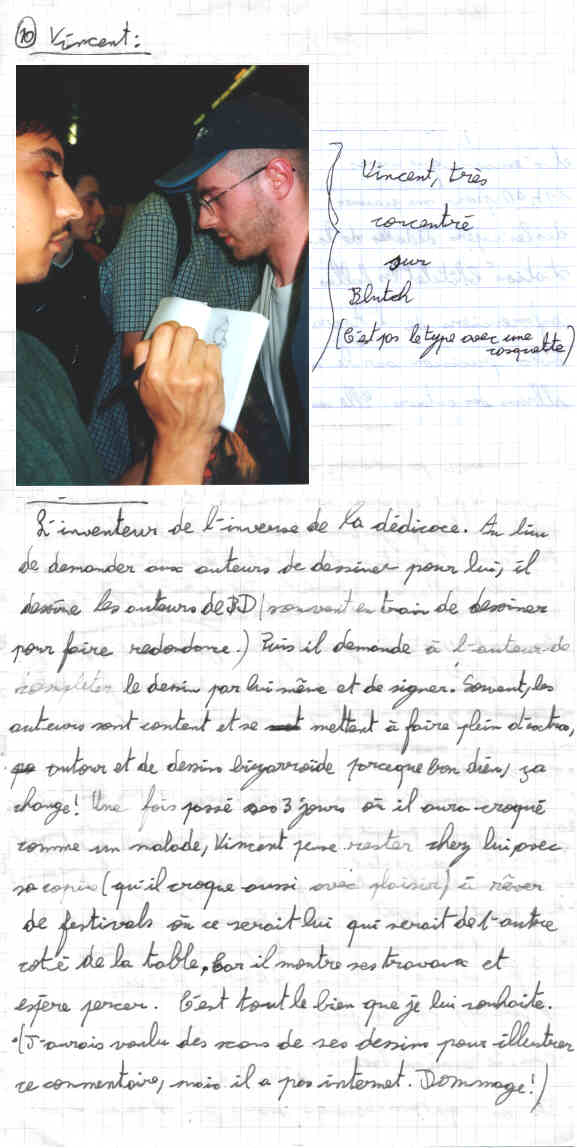 10 Vincent:
Vincent, très
concentré
sur
Blutch
(C'est pas le type avec une
casquette)
L'inventeur de l'inverse de la dédicace. Au lieu
de demander aux auteurs de dessiner pour lui, il
dessine les auteurs de BD (souvent en train de dessiner
pour faire redondance.) Puis il demande à l'auteur de
completer le dessin par lui même et de signer. Souvent, les
auteurs sont content et se mettent à faire plein d'extras,
autour et de dessins bizarroïde parceque bon dieu, ça
change! Une fois passé ses 3 jours où il aura croqué
comme un malade, Vincent peux rester chez lui, avec
sa copine (qu'il croque aussi avec plaisir) à rêver
de festivals où ce serait lui qui serait de l'autre
coté de la table, Car il montre ses travaux et
espère percer. C'est tout le bien que je lui souhaite.
(J'aurais voulu des scans de ses dessins pour illustrer
ce commentaire, mais il a pas internet. Dommage!)